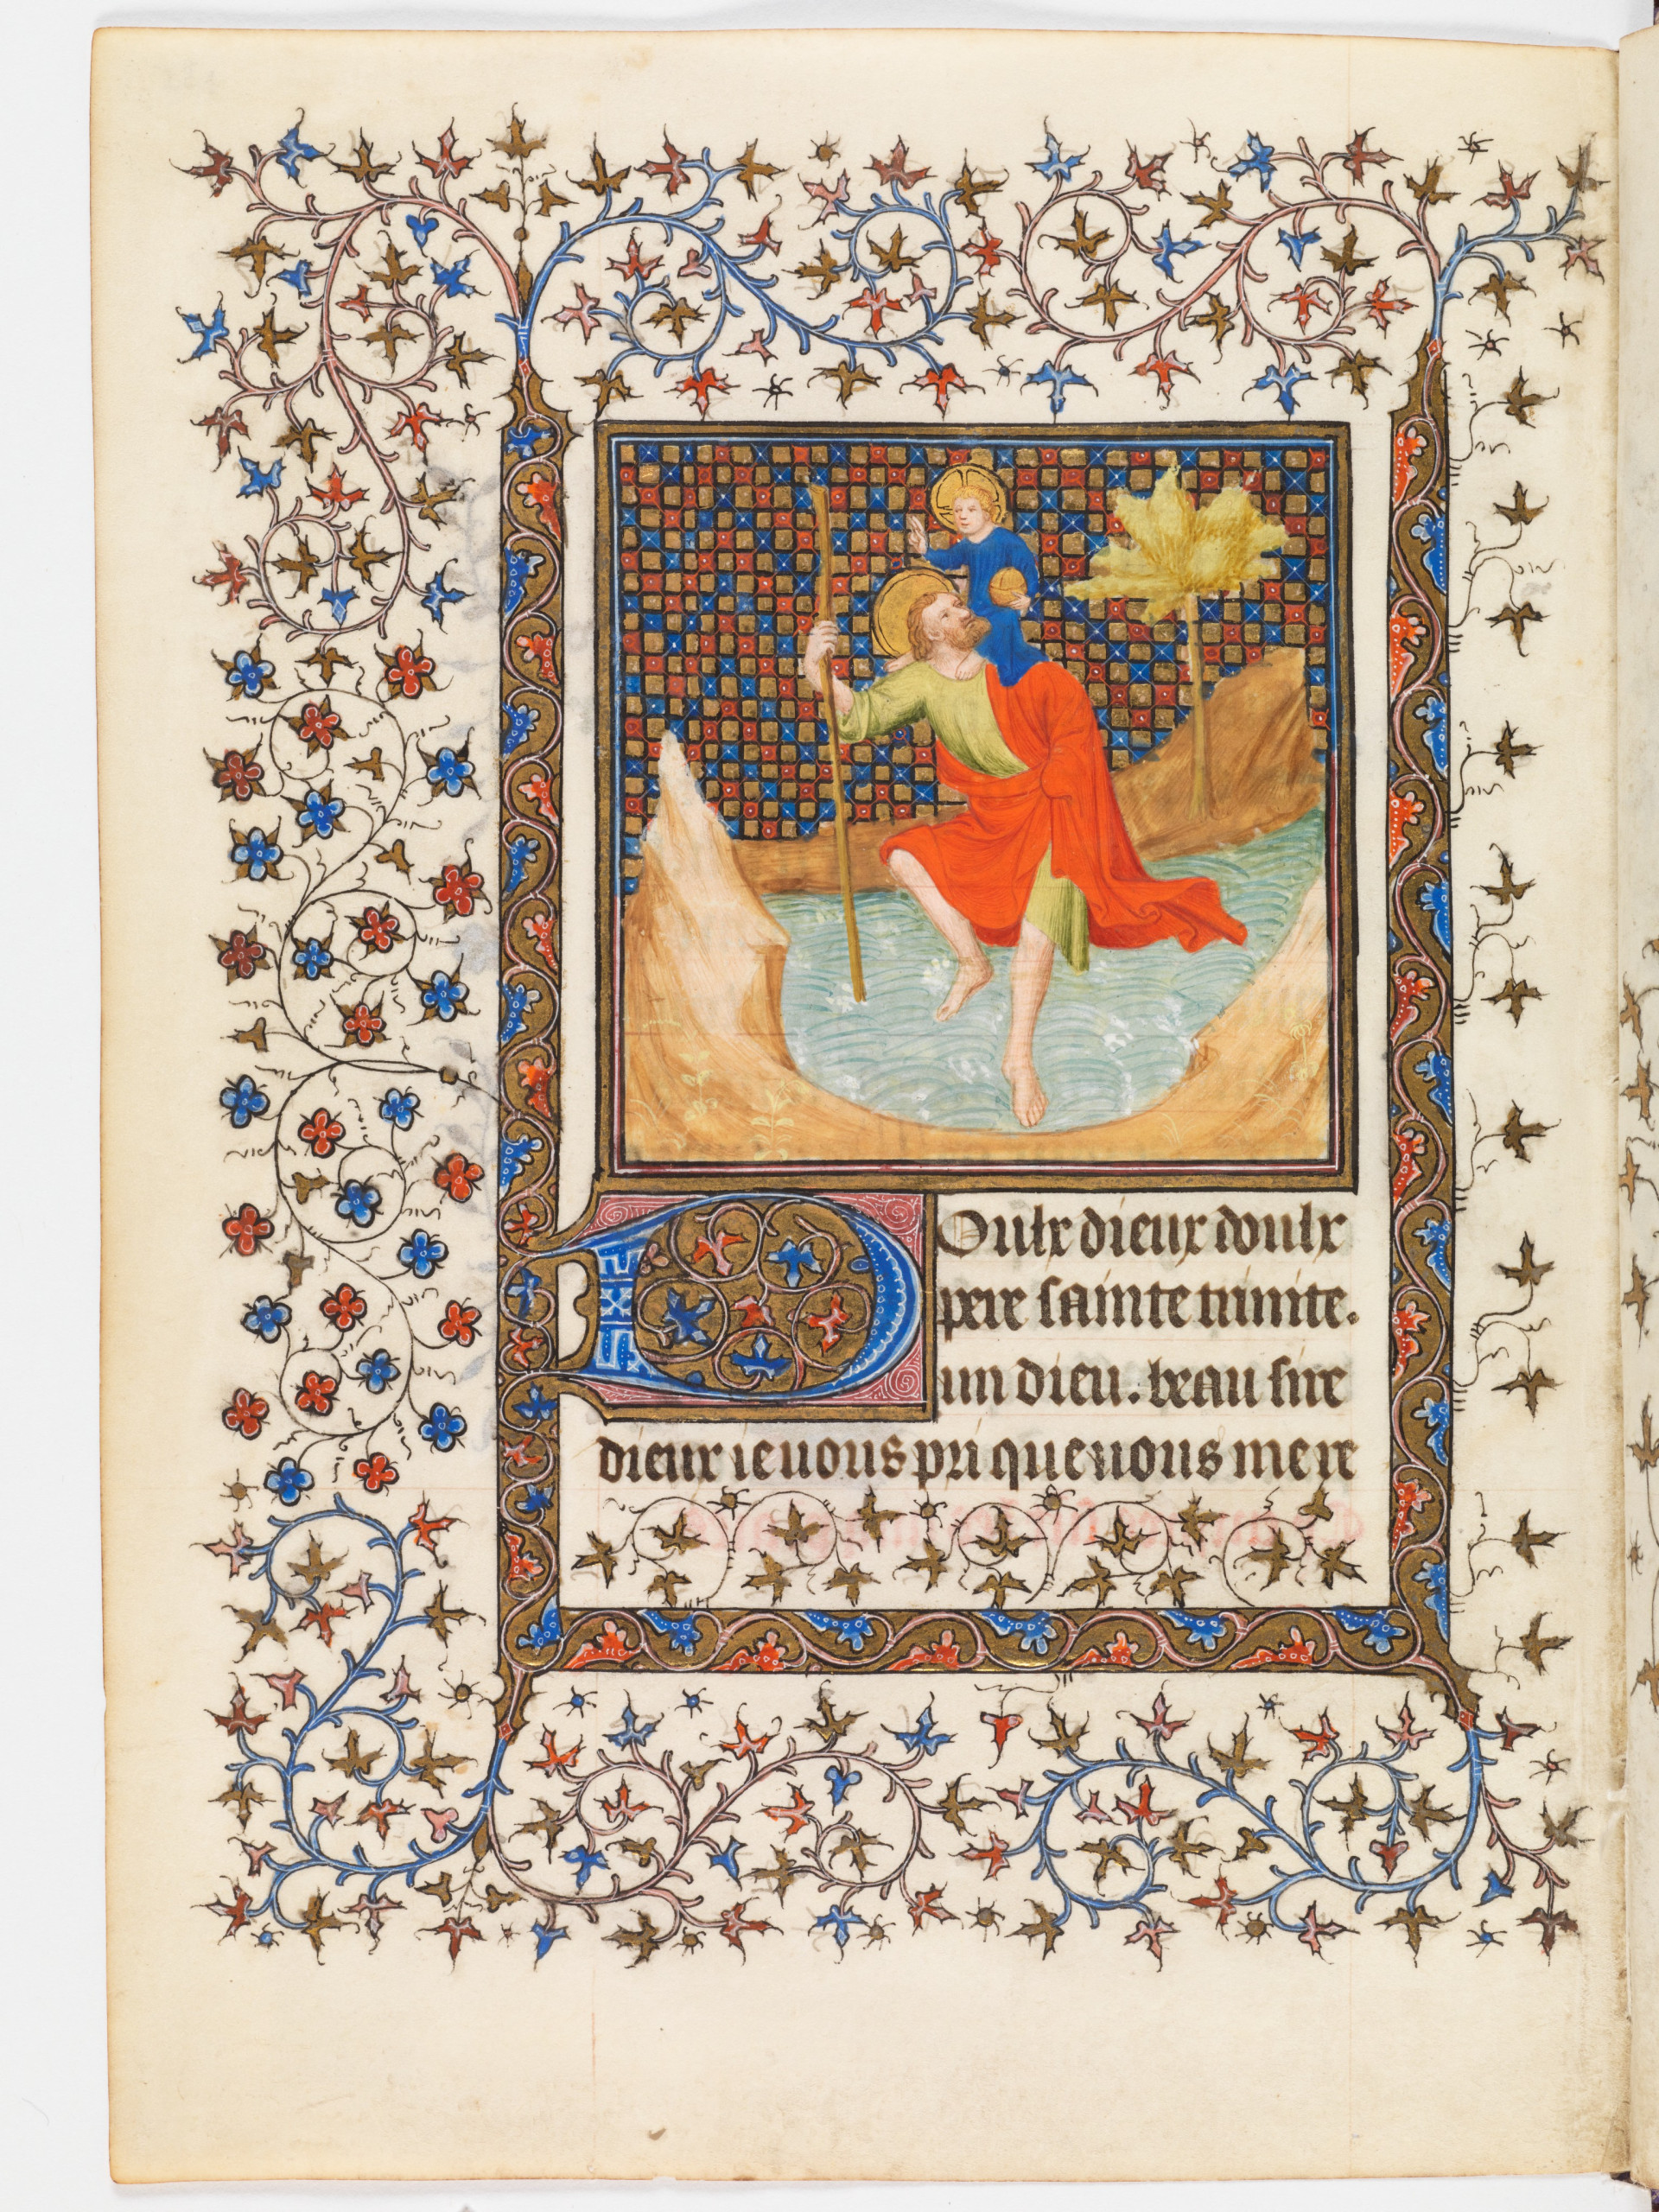 Doulx dieux doulx
pere sainte trinite.
un dieu. beau sire
dieux ie vous pri que vous me re